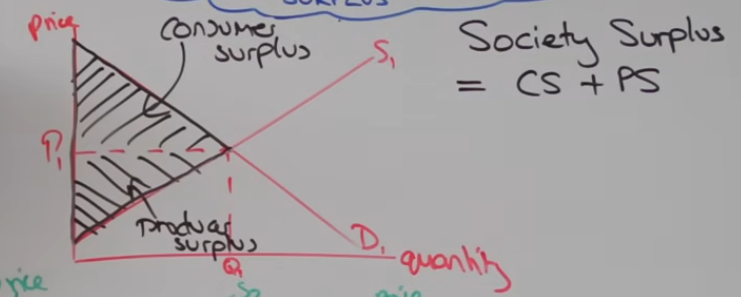 SURPLUS
price
consumer
surplus
S₁
Society Surplus
= CS + PS
P₁
producer
surplus
D₁
quantity
Q₁